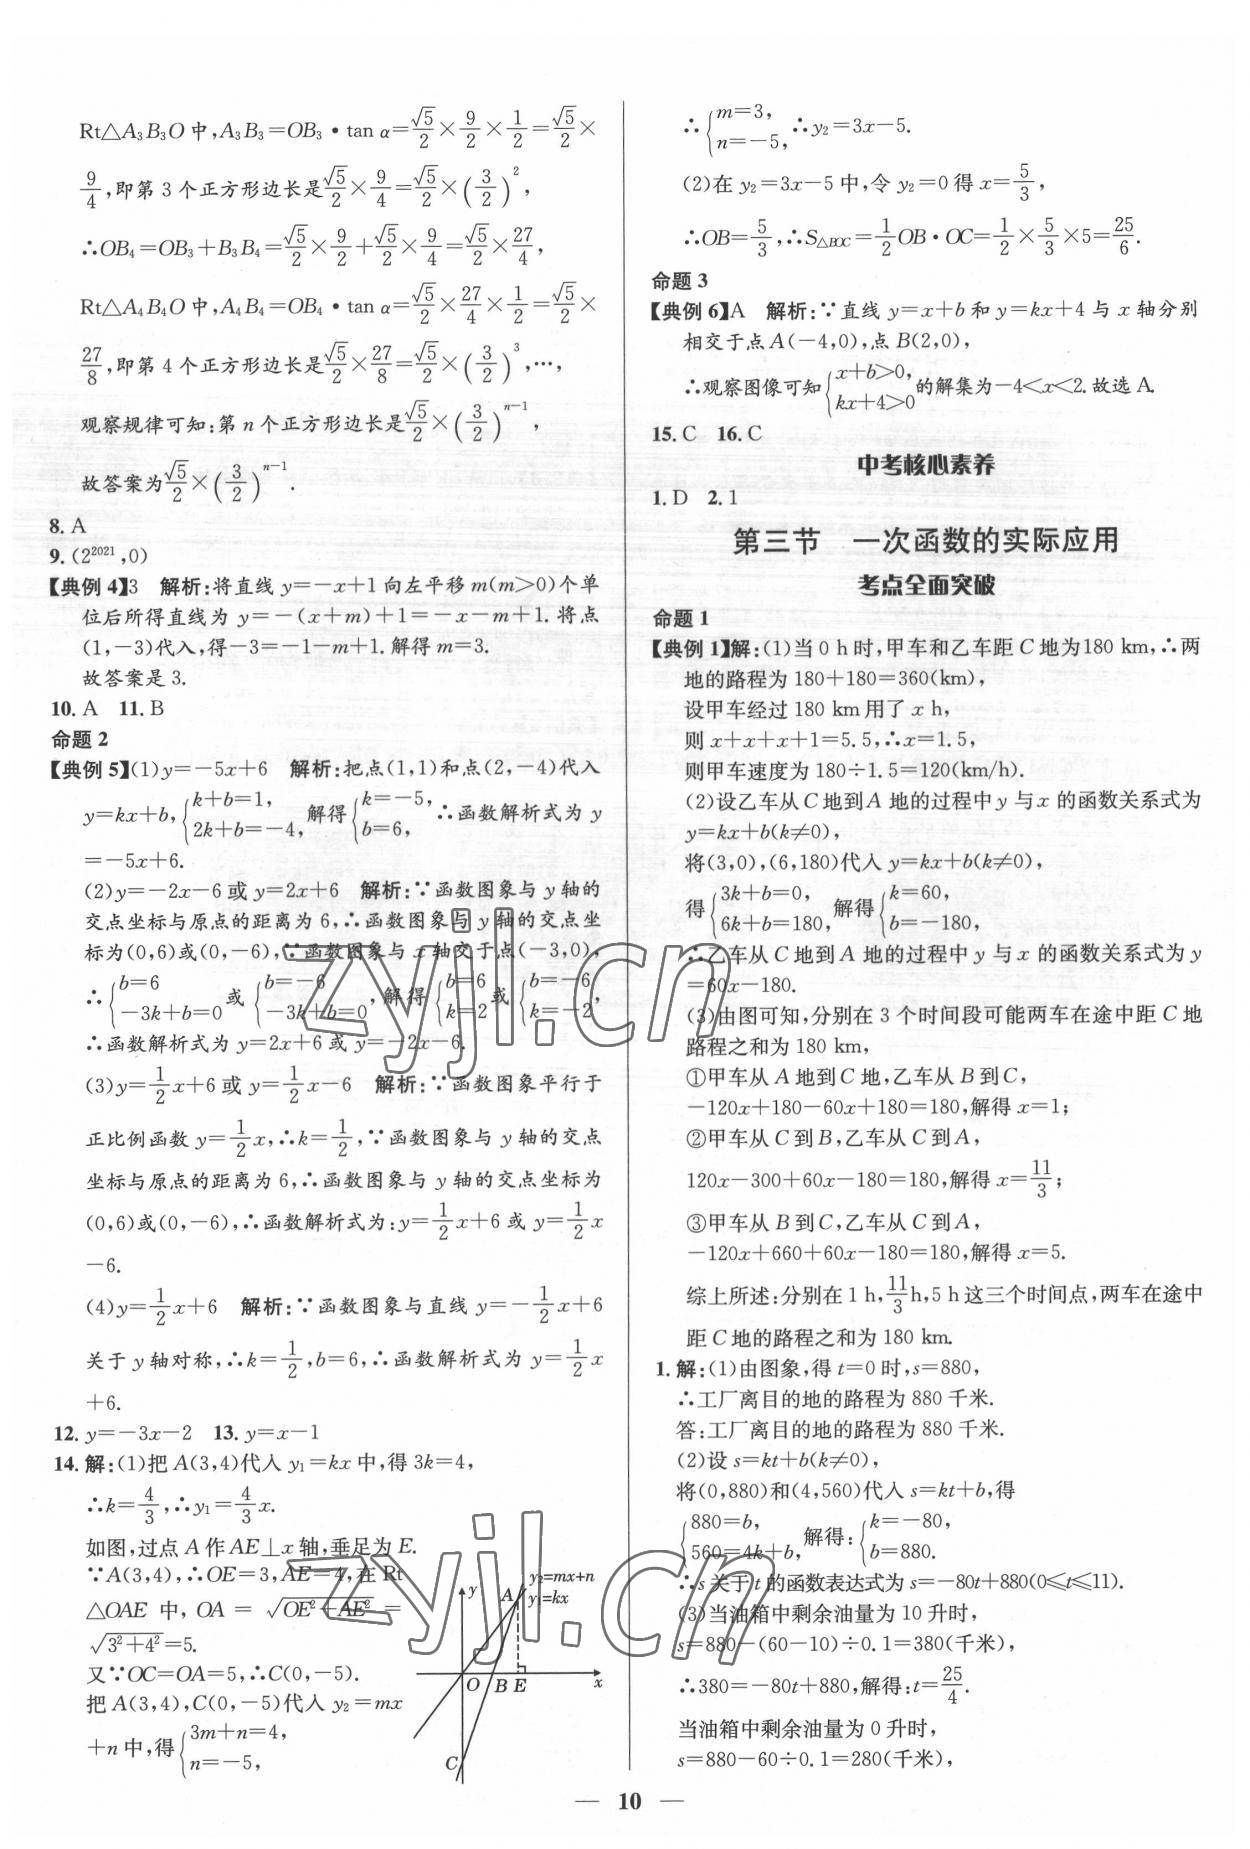 Rt△A₃B₃O 中,A₃B₃=OB₃·tan α=√5/2×9/2×1/2=√5/2×
9/4,即第 3 个正方形边长是√5/2×9/4=√5/2×(3/2)²,
∴OB₄=OB₃+B₃B₄=√5/2×9/2+√5/2×9/4=√5/2×27/4,
Rt△A₄B₄O 中,A₄B₄=OB₄·tan α=√5/2×27/4×1/2=√5/2×
27/8,即第 4 个正方形边长是√5/2×27/8=√5/2×(3/2)³,…,
观察规律可知:第 n 个正方形边长是√5/2×(3/2)ⁿ⁻¹,
故答案为√5/2×(3/2)ⁿ⁻¹.
8. A
9. (2²⁰²¹,0)
【典例 4】3 解析:将直线 y=-x+1 向左平移 m(m>0)个单
位后所得直线为 y=-(x+m)+1=-x-m+1. 将点
(1,-3)代入,得-3=-1-m+1. 解得 m=3.
故答案是 3.
10. A 11. B
命题 2
【典例 5】(1)y=-5x+6 解析:把点(1,1)和点(2,-4)代入
y=kx+b,{k+b=1, 2k+b=-4, 解得{k=-5, b=6, ∴函数解析式为 y
=-5x+6.
(2)y=-2x-6 或 y=2x+6 解析:∵函数图象与 y 轴的
交点坐标与原点的距离为 6,∴函数图象与 y 轴的交点坐
标为(0,6)或(0,-6),∵函数图象与 x 轴交于点(-3,0),
∴{b=6 -3k+b=0 或 {b=-6 -3k+b=0, 解得{b=6 k=2 或{b=-6 k=-2,
∴函数解析式为 y=2x+6 或 y=-2x-6.
(3)y=1/2x+6 或 y=1/2x-6 解析:∵函数图象平行于
正比例函数 y=1/2x,∴k=1/2,∵函数图象与 y 轴的交点
坐标与原点的距离为 6,∴函数图象与 y 轴的交点坐标为
(0,6)或(0,-6),∴函数解析式为:y=1/2x+6 或 y=1/2x
-6.
(4)y=1/2x+6 解析:∵函数图象与直线 y=-1/2x+6
关于 y 轴对称,∴k=1/2,b=6,∴函数解析式为 y=1/2x
+6.
12. y=-3x-2 13. y=x-1
14. 解:(1)把 A(3,4)代入 y₁=kx 中,得 3k=4,
∴k=4/3,∴y₁=4/3x.
如图,过点 A 作 AE⊥x 轴,垂足为 E.
∵A(3,4),∴OE=3,AE=4,在 Rt
△OAE 中,OA=√(OE²+AE²)=
√(3²+4²)=5.
又∵OC=OA=5,∴C(0,-5).
把 A(3,4),C(0,-5)代入 y₂=mx
+n 中,得{3m+n=4, n=-5,
y
A
y₂=mx+n
y₁=kx
O B E x
C
∴{m=3, n=-5, ∴y₂=3x-5.
(2)在 y₂=3x-5 中,令 y₂=0 得 x=5/3,
∴OB=5/3,∴S△BOC=1/2OB·OC=1/2×5/3×5=25/6.
命题 3
【典例 6】A 解析:∵直线 y=x+b 和 y=kx+4 与 x 轴分别
相交于点 A(-4,0),点 B(2,0),
∴观察图像可知{x+b>0, kx+4>0 的解集为-4<x<2. 故选 A.
15. C 16. C
中考核心素养
1. D 2. 1
第三节 一次函数的实际应用
考点全面突破
命题 1
【典例 1】解:(1)当 0 h 时,甲车和乙车距 C 地为 180 km,∴两
地的路程为 180+180=360(km),
设甲车经过 180 km 用了 x h,
则 x+x+x+1=5.5,∴x=1.5,
则甲车速度为 180÷1.5=120(km/h).
(2)设乙车从 C 地到 A 地的过程中 y 与 x 的函数关系式为
y=kx+b(k≠0),
将(3,0),(6,180)代入 y=kx+b(k≠0),
得{3k+b=0, 6k+b=180, 解得{k=60, b=-180,
∴乙车从 C 地到 A 地的过程中 y 与 x 的函数关系式为 y
=60x-180.
(3)由图可知,分别在 3 个时间段可能两车在途中距 C 地
路程之和为 180 km,
①甲车从 A 地到 C 地,乙车从 B 到 C,
-120x+180-60x+180=180,解得 x=1;
②甲车从 C 到 B,乙车从 C 到 A,
120x-300+60x-180=180,解得 x=11/3;
③甲车从 B 到 C,乙车从 C 到 A,
-120x+660+60x-180=180,解得 x=5.
综上所述:分别在 1 h,11/3 h,5 h 这三个时间点,两车在途中
距 C 地的路程之和为 180 km.
1. 解:(1)由图象,得 t=0 时,s=880,
∴工厂离目的地的路程为 880 千米.
答:工厂离目的地的路程为 880 千米.
(2)设 s=kt+b(k≠0),
将(0,880)和(4,560)代入 s=kt+b,得
{880=b, 560=4k+b, 解得:{k=-80, b=880.
∴s 关于 t 的函数表达式为 s=-80t+880(0≤t≤11).
(3)当油箱中剩余油量为 10 升时,
s=880-(60-10)÷0.1=380(千米),
∴380=-80t+880,解得:t=25/4.
当油箱中剩余油量为 0 升时,
s=880-60÷0.1=280(千米),
— 10 —
zyjl.cn
zyjl.cn